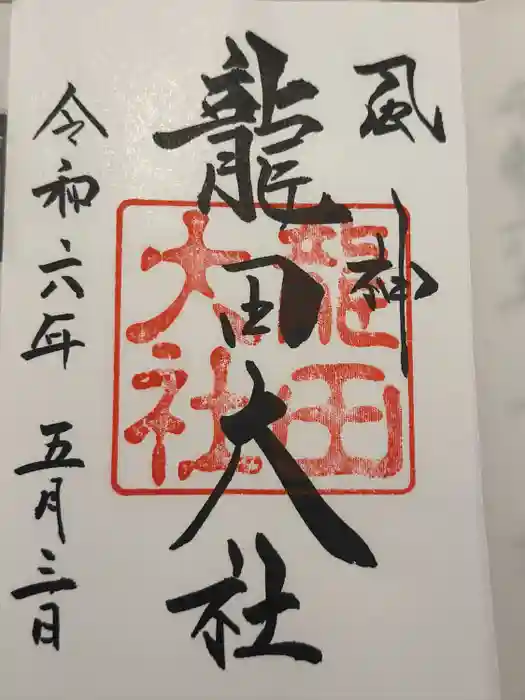 風神
龍田大社
龍田大社
令和六年 五月三日